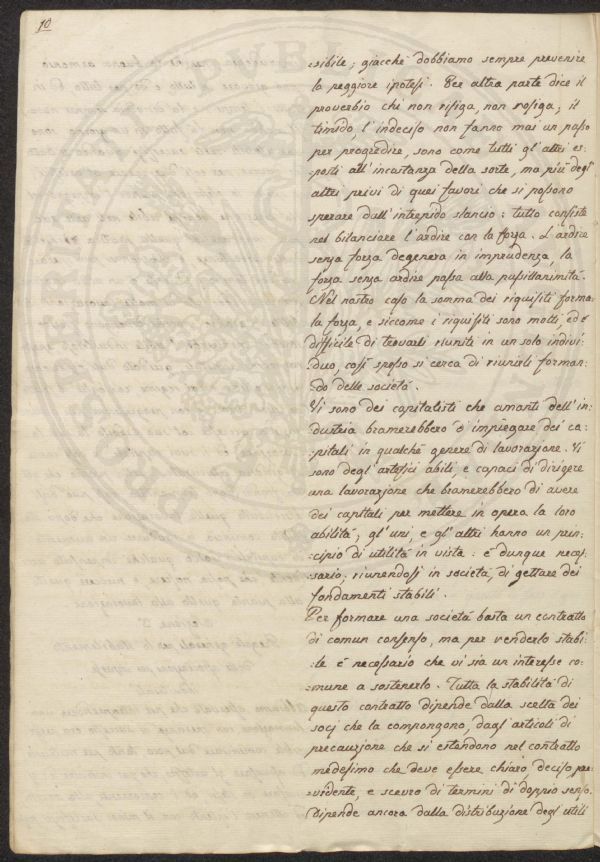 10
sibile; giacchè dobbiamo sempre prevenire
la peggiore ipotesi. Per altra parte dice il
proverbio chi non risiga, non rosiga; il
timido, l'indeciso non fanno mai un passo
per progredire, sono come tutti gl'altri es-
posti all'incostanza della sorte, ma più degl'
altri privi di quei favori che si possono
sperare dall'intrepido slancio: tutto consiste
nel bilanciare l'ardire con la forza. L'ardire
senza forza degenera in imprudenza, la
forza senza ardire passa alla pusillanimità.
Nel nostro caso la somma dei riquisiti forma
la forza, e siccome i riquisiti sono molti, ed è
difficile di trovarli riuniti in un solo indivi-
duo, così spesso si cerca di riunirli forman-
do delle società.
Vi sono dei capitalisti che amanti dell'in-
dustria bramerebbero d'impiegare dei ca-
pitali in qualchè genere di lavorazione. Vi
sono degl'artefici abili, e capaci di dirigere
una lavorazione che bramerebbero di avere
dei capitali per mettere in opera la loro
abilità; gl'uni, e gl'altri hanno un prin-
cipio di utilità in vista: è dunque neces-
sario, riunendosi in società, di gettare dei
fondamenti stabili.
Per formare una società basta un contratto
di comun consenso, ma per renderlo stabi-
le è necessario che vi sia un interesse co-
mune a sostenerlo. Tutta la stabilità di
questo contratto dipende dalla scelta dei
socj che la compongono, dagl'articoli di
precauzione che si estendono nel contratto
medesimo che deve essere chiaro, deciso pre-
vidente, e scevro di termini di doppio senso.
Dipende ancora dalla distribuzione degl'utili